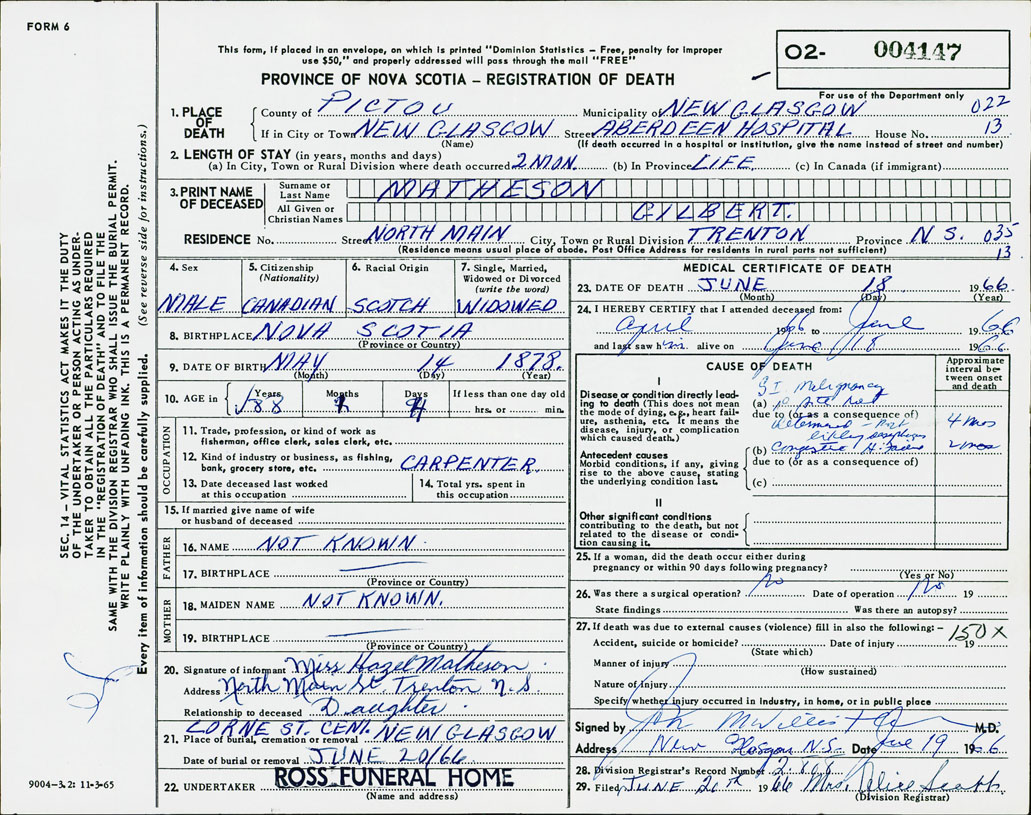 FORM 6
This form, if placed in an envelope, on which is printed "Dominion Statistics – Free, penalty for improper
use $50," and properly addressed will pass through the mail "FREE"
PROVINCE OF NOVA SCOTIA – REGISTRATION OF DEATH
O2- 004147
For use of the Department only
1. PLACE OF DEATH County of PICTOU Municipality of NEW GLASGOW 022
If in City or Town NEW GLASGOW Street ABERDEEN HOSPITAL House No. 13
(Name) (If death occurred in a hospital or institution, give the name instead of street and number)
2. LENGTH OF STAY (in years, months and days)
(a) In City, Town or Rural Division where death occurred 2 MON. (b) In Province LIFE. (c) In Canada (if immigrant)
3. PRINT NAME OF DECEASED Surname or Last Name MATHESON
All Given or Christian Names GILBERT.
RESIDENCE No. Street NORTH MAIN City, Town or Rural Division TRENTON Province N S. 035
(Residence means usual place of abode. Post Office Address for residents in rural parts not sufficient) 13
4. Sex MALE
5. Citizenship (Nationality) CANADIAN
6. Racial Origin SCOTCH
7. Single, Married, Widowed or Divorced (write the word) WIDOWED
8. BIRTHPLACE NOVA SCOTIA
(Province or Country)
9. DATE OF BIRTH MAY 14 1878.
(Month) (Day) (Year)
10. AGE in Years 88 Months 1 Days 4 If less than one day old
hrs. or min.
OCCUPATION
11. Trade, profession or kind of work as
fisherman, office clerk, sales clerk, etc.
12. Kind of industry or business, as fishing,
bank, grocery store, etc. CARPENTER.
13. Date deceased last worked
at this occupation
14. Total yrs. spent in
this occupation
15. If married give name of wife
or husband of deceased
FATHER
16. NAME NOT KNOWN.
17. BIRTHPLACE
(Province or Country)
MOTHER
18. MAIDEN NAME NOT KNOWN.
19. BIRTHPLACE
(Province or Country)
20. Signature of informant Miss Hazel Matheson
Address North Main St. Trenton N.S.
Relationship to deceased Daughter.
LORNE ST. CEM. NEW GLASGOW
21. Place of burial, cremation or removal
Date of burial or removal JUNE 20/66
22. UNDERTAKER ROSS FUNERAL HOME
(Name and address)
MEDICAL CERTIFICATE OF DEATH
23. DATE OF DEATH JUNE 18 1966.
(Month) (Day) (Year)
24. I HEREBY CERTIFY that I attended deceased from:
April 1966 to June 1966
and last saw him alive on June 18 1966
CAUSE OF DEATH
Approximate interval between onset and death
I
Disease or condition directly leading to death (This does not mean
the mode of dying, e.g., heart failure, asthenia, etc. It means the
disease, injury, or complication
which caused death.)
G I Malignancy
(a) site not
due to (or as a consequence of)
determined – most 4 mos
likely esophagus
Antecedent causes
Morbid conditions, if any, giving
rise to the above cause, stating
the underlying condition last.
(b) Congestive H. Failure 2 mos
due to (or as a consequence of)
(c)
II
Other significant conditions
contributing to the death, but not
related to the disease or condition causing it.
25. If a woman, did the death occur either during
pregnancy or within 90 days following pregnancy?
(Yes or No)
26. Was there a surgical operation? No Date of operation No 19
State findings Was there an autopsy?
27. If death was due to external causes (violence) fill in also the following: – 150X
Accident, suicide or homicide? Date of injury 19
(State which)
Manner of injury
(How sustained)
Nature of Injury
Specify whether injury occurred in Industry, in home, or in public place
Signed by M.D.
Address New Glasgow N.S. Date June 19 1966
28. Division Registrar's Record Number
29. Filed JUNE 20th 1966 Mrs. Alice Scott
(Division Registrar)
SEC. 14 – VITAL STATISTICS ACT MAKES IT THE DUTY
OF THE UNDERTAKER OR PERSON ACTING AS UNDERTAKER TO OBTAIN ALL THE PARTICULARS REQUIRED
IN THE "REGISTRATION OF DEATH" AND TO FILE THE
SAME WITH THE DIVISION REGISTRAR WHO SHALL ISSUE THE BURIAL PERMIT.
WRITE PLAINLY WITH UNFADING INK. THIS IS A PERMANENT RECORD.
Every item of information should be carefully supplied. (See reverse side for instructions.)
9004-3.2: 11-3-65